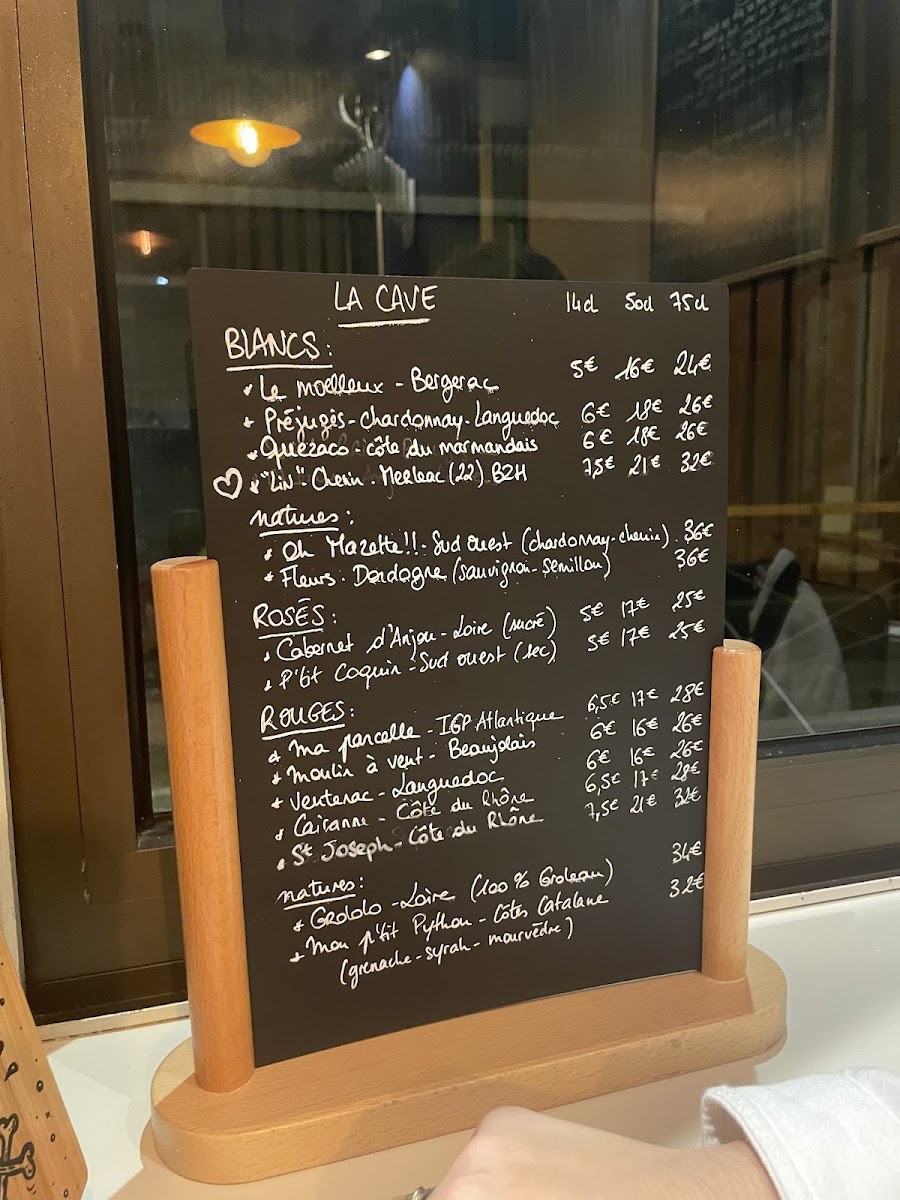 LA CAVE 14cl 50cl 75cl
BLANCS :
* Le moelleux - Bergerac 5€ 16€ 24€
* Préjugés - chardonnay - Languedoc 6€ 18€ 26€
* Quezaco - côte du marmandais 6€ 18€ 26€
* "Liv" Chenin . Merleac (22) BZH 7,5€ 21€ 32€
natures :
* Oh Mazette!! - Sud Ouest (chardonnay - chenin) . 36€
* Fleurs . Dordogne (sauvignon - semillon) 36€
ROSÉS :
* Cabernet d'Anjou - Loire (sucré) 5€ 17€ 25€
* P'tit Coquin - Sud ouest (sec) 5€ 17€ 25€
ROUGES :
* ma parcelle - IGP Atlantique 6,5€ 17€ 28€
* Moulin à vent - Beaujolais 6€ 16€ 26€
* Ventenac - Languedoc 6€ 16€ 26€
* Cairanne - Côte du Rhône 6,5€ 17€ 28€
* St Joseph - Côte du Rhône 7,5€ 21€ 32€
natures :
* Grololo - Loire (100% Groleau) 34€
* Mon p'tit Python - Côtes Catalane 32€
(grenache - syrah - mourvèdre)